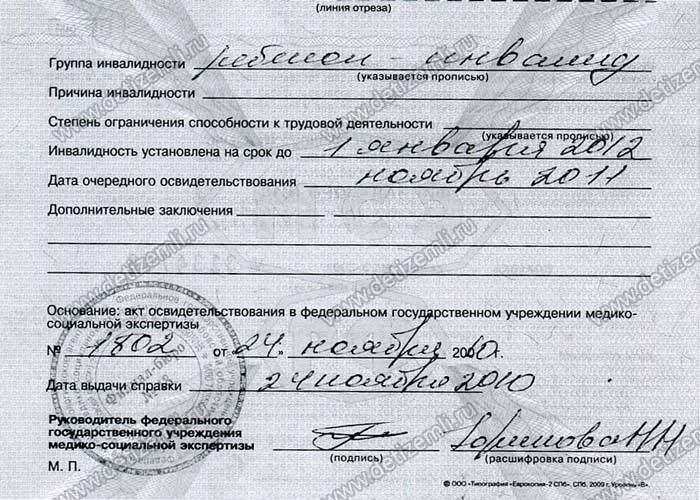 (линия отреза)
Группа инвалидности ребенок - инвалид
(указывается прописью)
Причина инвалидности
Степень ограничения способности к трудовой деятельности
(указывается прописью)
Инвалидность установлена на срок до 1 января 2012
Дата очередного освидетельствования ноябрь 2011
Дополнительные заключения
Основание: акт освидетельствования в федеральном государственном учреждении медико-
социальной экспертизы
№ 1802 от "24" ноября 2010г.
Дата выдачи справки 24 ноября 2010
Руководитель федерального
государственного учреждения
медико-социальной экспертизы
(подпись) (расшифровка подписи)
М. П.
© ООО «Типография «Еврокопия-2 СПб». СПб. 2009 г. Уровень «В».
www.detizemli.ru